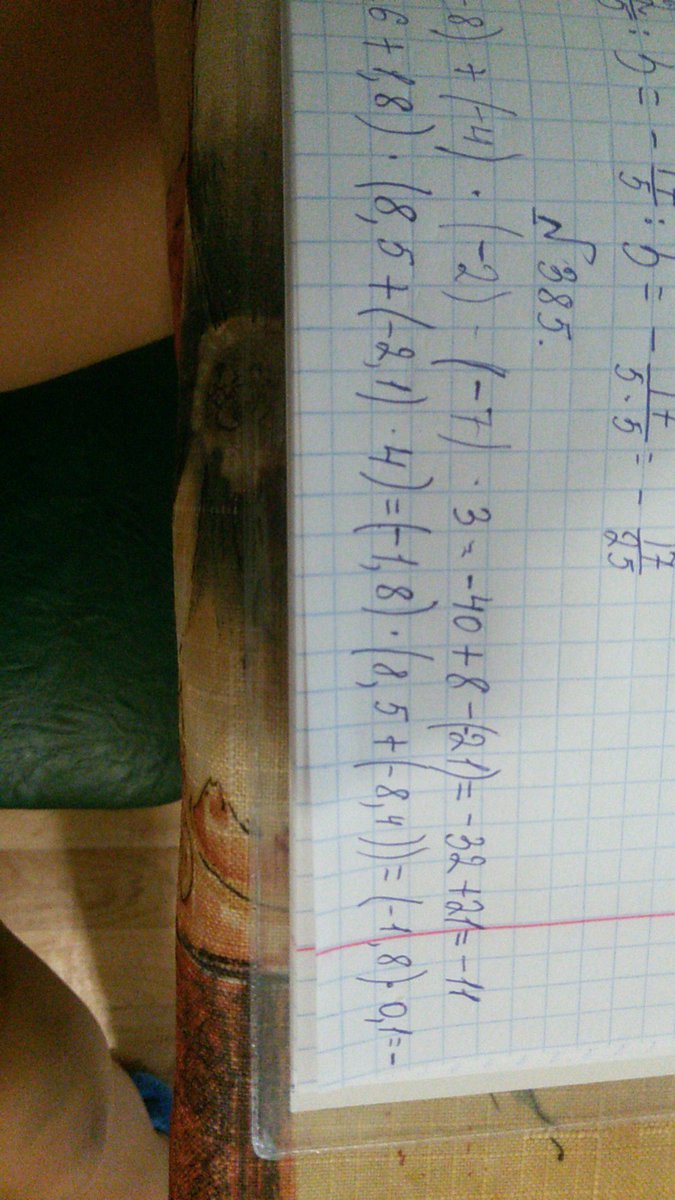 : b = - 17/5 : b = - 17/(5·5) = - 17/25
№ 385.
-8) + (-4) · (-2) - (-7) · 3 = -40 + 8 - (21) = -32 + 21 = -11
6 + 1,8) · (8,5 + (-2,1) · 4) = (-1,8) · (8,5 + (-8,4)) = (-1,8) · 0,1 = -